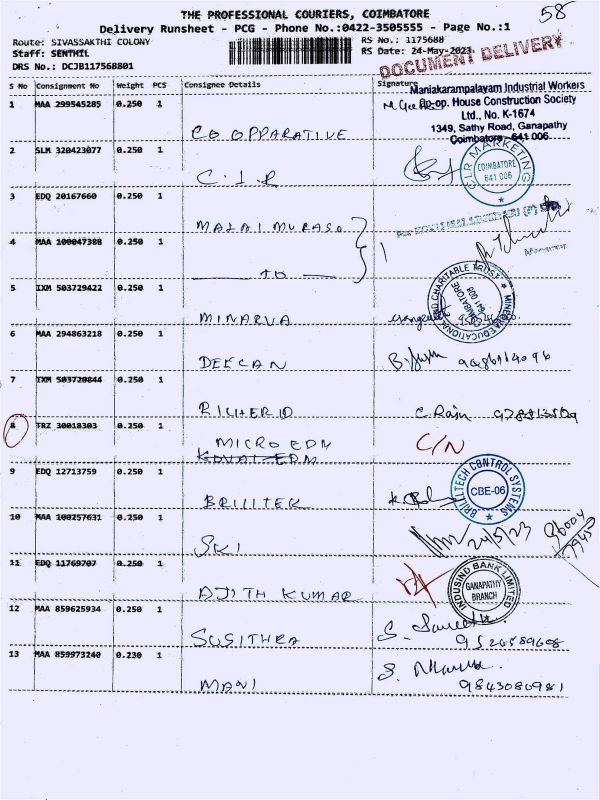 THE PROFESSIONAL COURIERS, COIMBATORE
58
Delivery Runsheet - PCG - Phone No.:0422-3505555 - Page No.:1
Route: SIVASSAKTHI COLONY
RS No.: 1175688
Staff: SENTHIL
RS Date: 24-May-2023
DRS No.: DCJB117568801
DOCUMENT DELIVERY
S No Consignment No Weight PCS Consignee Details Signature
Maniakarampalayam Industrial Workers
Co-op. House Construction Society
Ltd., No. K-1674
1349, Sathy Road, Ganapathy
Coimbatore - 641 006
1 MAA 299545285 0.250 1
CO OPPARATIVE
2 SLM 320423077 0.250 1
C.I.R
CLR MARKETING
COIMBATORE
641 006
3 EDQ 20167660 0.250 1
MALAI MURASU
4 MAA 100047388 0.250 1
TO
5 IXM 503729422 0.250 1
MINARVA
MINERVA EDUCATIONAL AND CHARITABLE TRUST
6 MAA 294863218 0.250 1
DEECAN
7 IXM 503720844 0.250 1
RICHERID
C. Raju
8 TRZ 30018303 0.250 1
MICRO EDM
KOVAI EDM
C/N
9 EDQ 12713759 0.250 1
BRILITEK
BRILLITECH CONTROL SYSTEMS
CBE-06
10 MAA 100257631 0.250 1
SKI
24/5/23
11 EDQ 11769707 0.250 1
AJITH KUMAR
INDUSIND BANK LIMITED
GANAPATHY
BRANCH
12 MAA 859625934 0.250 1
SUSITHRA
13 MAA 859973240 0.230 1
MANI
9843080981